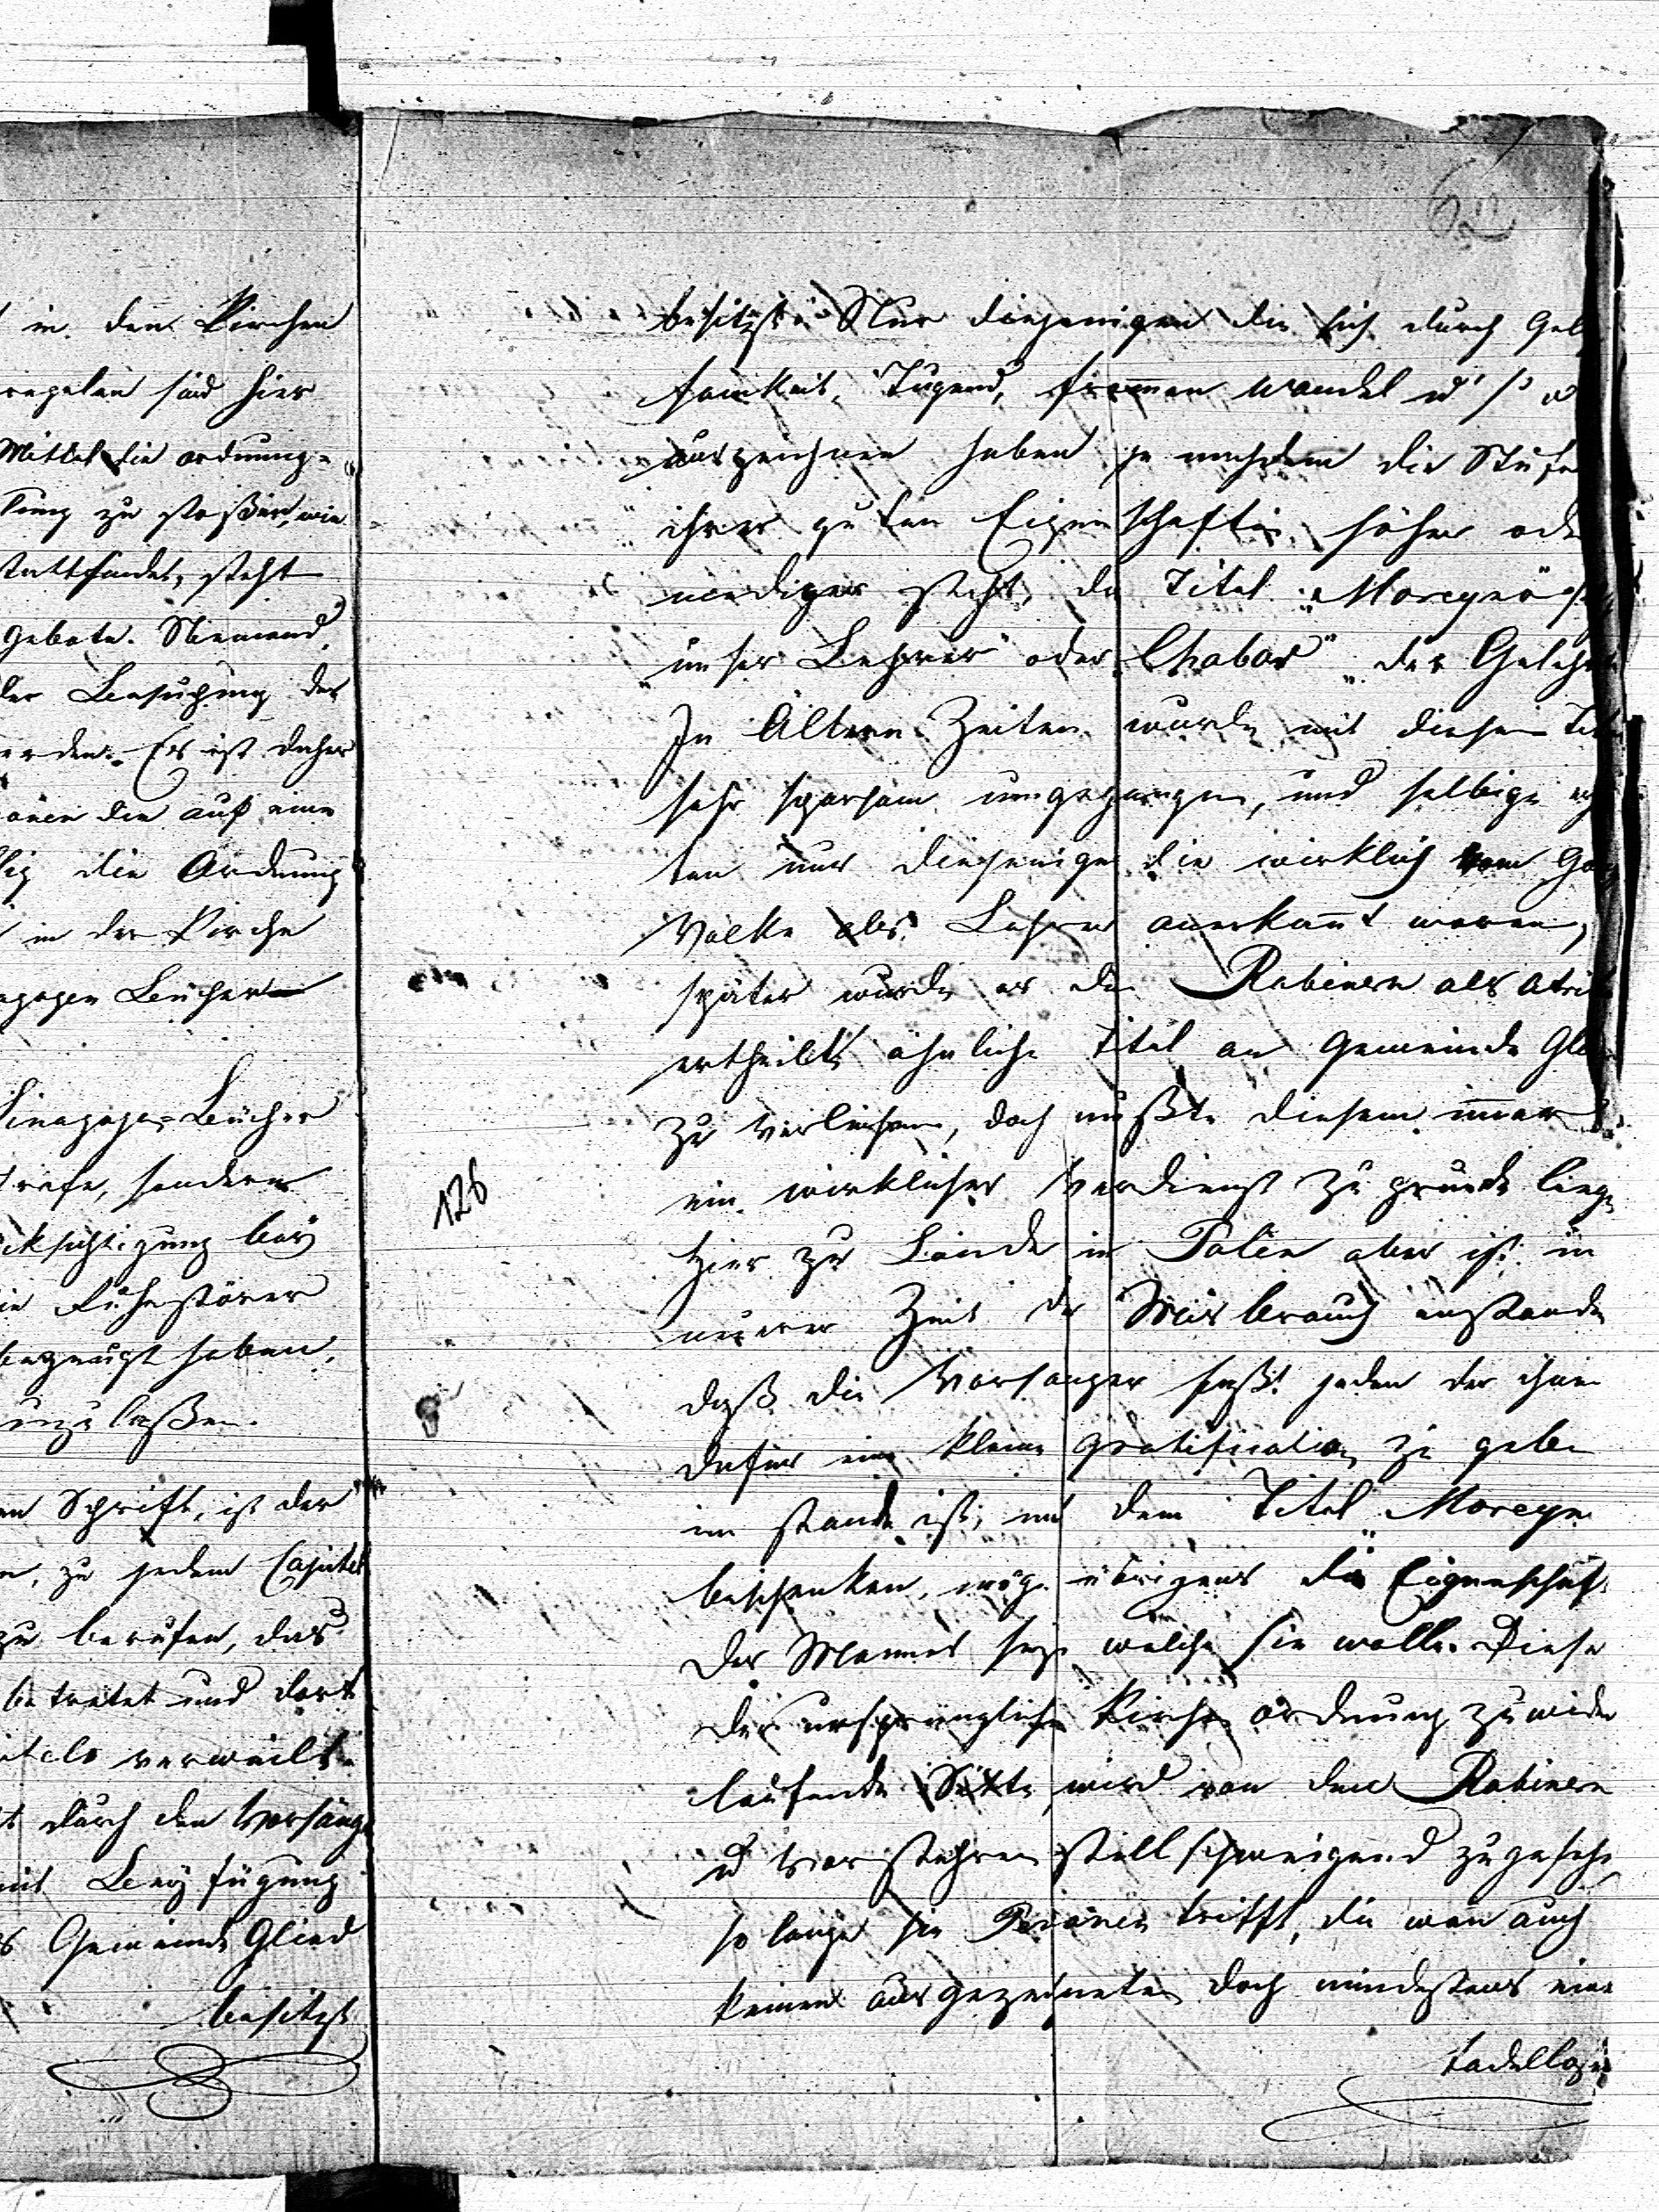 in den Kirchen
regalen sind hier
Mittel die ordnung=
zu stoßen, wie
stattfindet, steht
Gebote. Niemand
der Besuchung der
werden. Es ist daher
die auf eine
die Ordnung
in der Kirche
Sinagoge=Bücher
strafe, sondern
Ruhestörer
bezeugt haben,
zulaßen.
Schrift, ist der
zu jedem Capitel
zu berufen, das
betretet und dort
verweilt.
durch den Vorsänger
mit Beyfügung
Gemeinde Glied
besitzt
62
besitzt. Nur diejenigen die sich durch Gel
samkeit, Tugend, frommen Wandel u
auszeichnen haben je nachdem die Stufe
ihrer guten Eigenschaften höher oder
niediger steht, den Titel „Moreyne"
„unser Lehrer" oder „Chabar" der Gelehrte
In Ältern Zeiten wurde mit diesem Titel
sehr sparsam umgegangen, und selbige
ten nur diejenigen die wirklich vom
Volke als Lehrer anerkannt waren,
später wurde es den Rabinern als
ertheilt ähnliche Titel an Gemeinde Gl
zu verleihen, doch mußte diesem immer
126
ein wirklicher Verdienst zu grunde liegen
Hier zu Lande in Polen aber ist in
neuerer Zeit der Misbrauch enstanden
daß die Vorsanger fast jeden der ihnen
dafür eine kleine Gratification zu geben
im stande ist, mit dem Titel „Moreyne
beschenken, möge übrigens die Eigenschaft
des Mannes seyn welche sie wolle. Diese
der ursprunglichen Kirchen ordnung zuwider
laufende Sitte, wird von den Rabinern
u Vorstehern stillschweigend zugesehen
so lange sie trifft, die wenn auch
keinen ausgezeichneten doch mindestens eine
tadellosen